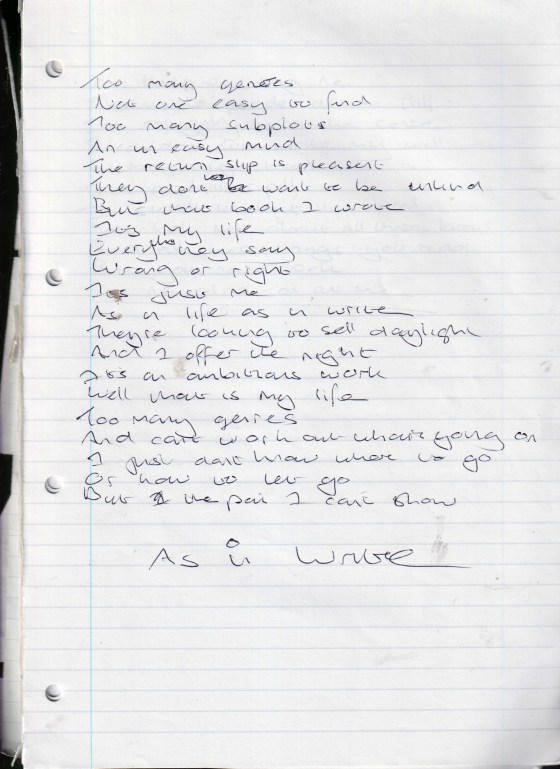 Too many genres
Not one easy to find
Too many subplots
An un easy mind
The return slip is pleasent
They dont want to be unkind
But that book I wrote
Its my life
Every they say
Wrong or right
Its just me
As in life as in write
Theyre looking to sell daylight
And I offer the night
Its an ambitious work
Well that is my life
Too many genres
And cant work out whats going on
I just dont know where to go
Or how to let go
But the pain I cant show
As in Write